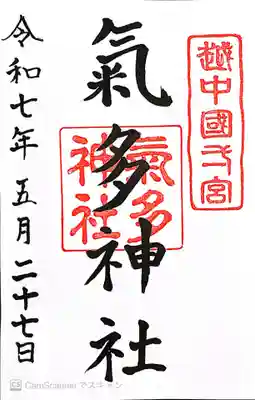 越中國弌宮
氣多神社
氣多
神社
令和七年 五月二十七日
CS CamScanner でスキャン